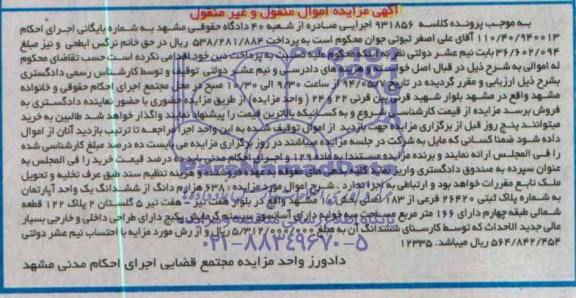 آگهی مزایده اموال منقول و غیر منقول
به موجب پرونده کلاسه ۹۳۱۸۵۶ اجرایی صادره از شعبه ۴۰ دادگاه حقوقی مشهد به شماره بایگانی اجرای احکام
۱۱۰/۴۰/۹۴۰۰۱۳ آقای علی اصغر ثبوتی جوان محکوم است به پرداخت ۵۳۸/۲۸۱/۸۸۴ ریال در حق خانم نرگس ابطحی و نیز مبلغ
۳۶/۶۰۲/۰۹۴ بابت نیم عشر دولتی نظر به اینکه محکوم علیه نسبت به پرداخت دین خود اقدامی نکرده است حسب تقاضای محکوم
له اموالی به شرح ذیل در قبال اصل خواسته و هزینه های دادرسی و نیم عشر دولتی توقیف و توسط کارشناس رسمی دادگستری
بشرح ذیل ارزیابی و مقرر گردیده در تاریخ ۹۴/۰۵/۰۷ از ساعت ۹/۳۰ الی ۱۰/۳۰ صبح در محل مجتمع اجرای احکام حقوقی و خانواده
مشهد واقع در مشهد بلوار شهید قرنی بین قرنی ۲۲ و ۲۴ (واحد مزایده) از طریق مزایده حضوری با حضور نماینده دادگستری به
فروش برسد مزایده از قیمت کارشناسی شروع و به کسانیکه بالاترین قیمت را پیشنهاد نمایند واگذار خواهد شد طالبین به خرید
میتوانند پنج روز قبل از برگزاری مزایده جهت بازدید از اموال توقیف شده به این واحد اجرا مراجعه تا ترتیب بازدید آنان از اموال
داده شود ضمنا کسانی که مایل به شرکت در جلسه مزایده میباشند در روز برگزاری مزایده می بایست ده درصد مبلغ کارشناسی شده
را فی المجلس ارائه نمایند و برنده مزایده مستندا به ماده ۱۲۹ ق اجرای احکام مدنی باید ده درصد قیمت خرید را فی المجلس به
عنوان سپرده به صندوق دادگستری واریز نماید کلیه بدهی های معوقه به عهده فروشنده و هزینه تنظیم سند طبق عرف تخلیه و تحویل
ملک تابع مقررات خواهد بود و ارتباطی به اجرا ندارد. شرح اموال مورد مزایده: ۶۳۸ هزارم دانگ از ششدانگ یک واحد آپارتمان
به شماره پلاک ثبتی ۲۶۴۲۰ فرعی از ۱۸۳ اصلی بخش ۱۰ مشهد واقع در بلوار هفت تیر - هفت تیر ۵ گلستان ۲ پلاک ۱۲۲ قطعه
شمالی طبقه چهارم دارای ۱۶۶ متر مربع مساحت بنا دارای آسانسور سیستم گرمایش پکیج دارای طراحی داخلی و خارجی بسیار
عالی جدید الاحداث که توسط کارسنای ششدانگ آن به مبلغ ۵/۳۱۲/۰۰۰/۰۰۰ ریال و ارزش مورد مزایده با احتساب نیم عشر دولتی
۵۶۴/۸۴۲/۴۵۴ ریال میباشد. ۱۲۳۳۵
۰۲۱-۸۸۳۴۹۶۷۰-۵
دادورز واحد مزایده مجتمع قضایی اجرای احکام مدنی مشهد